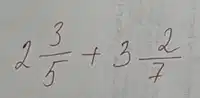 2 3/5 + 3 2/7